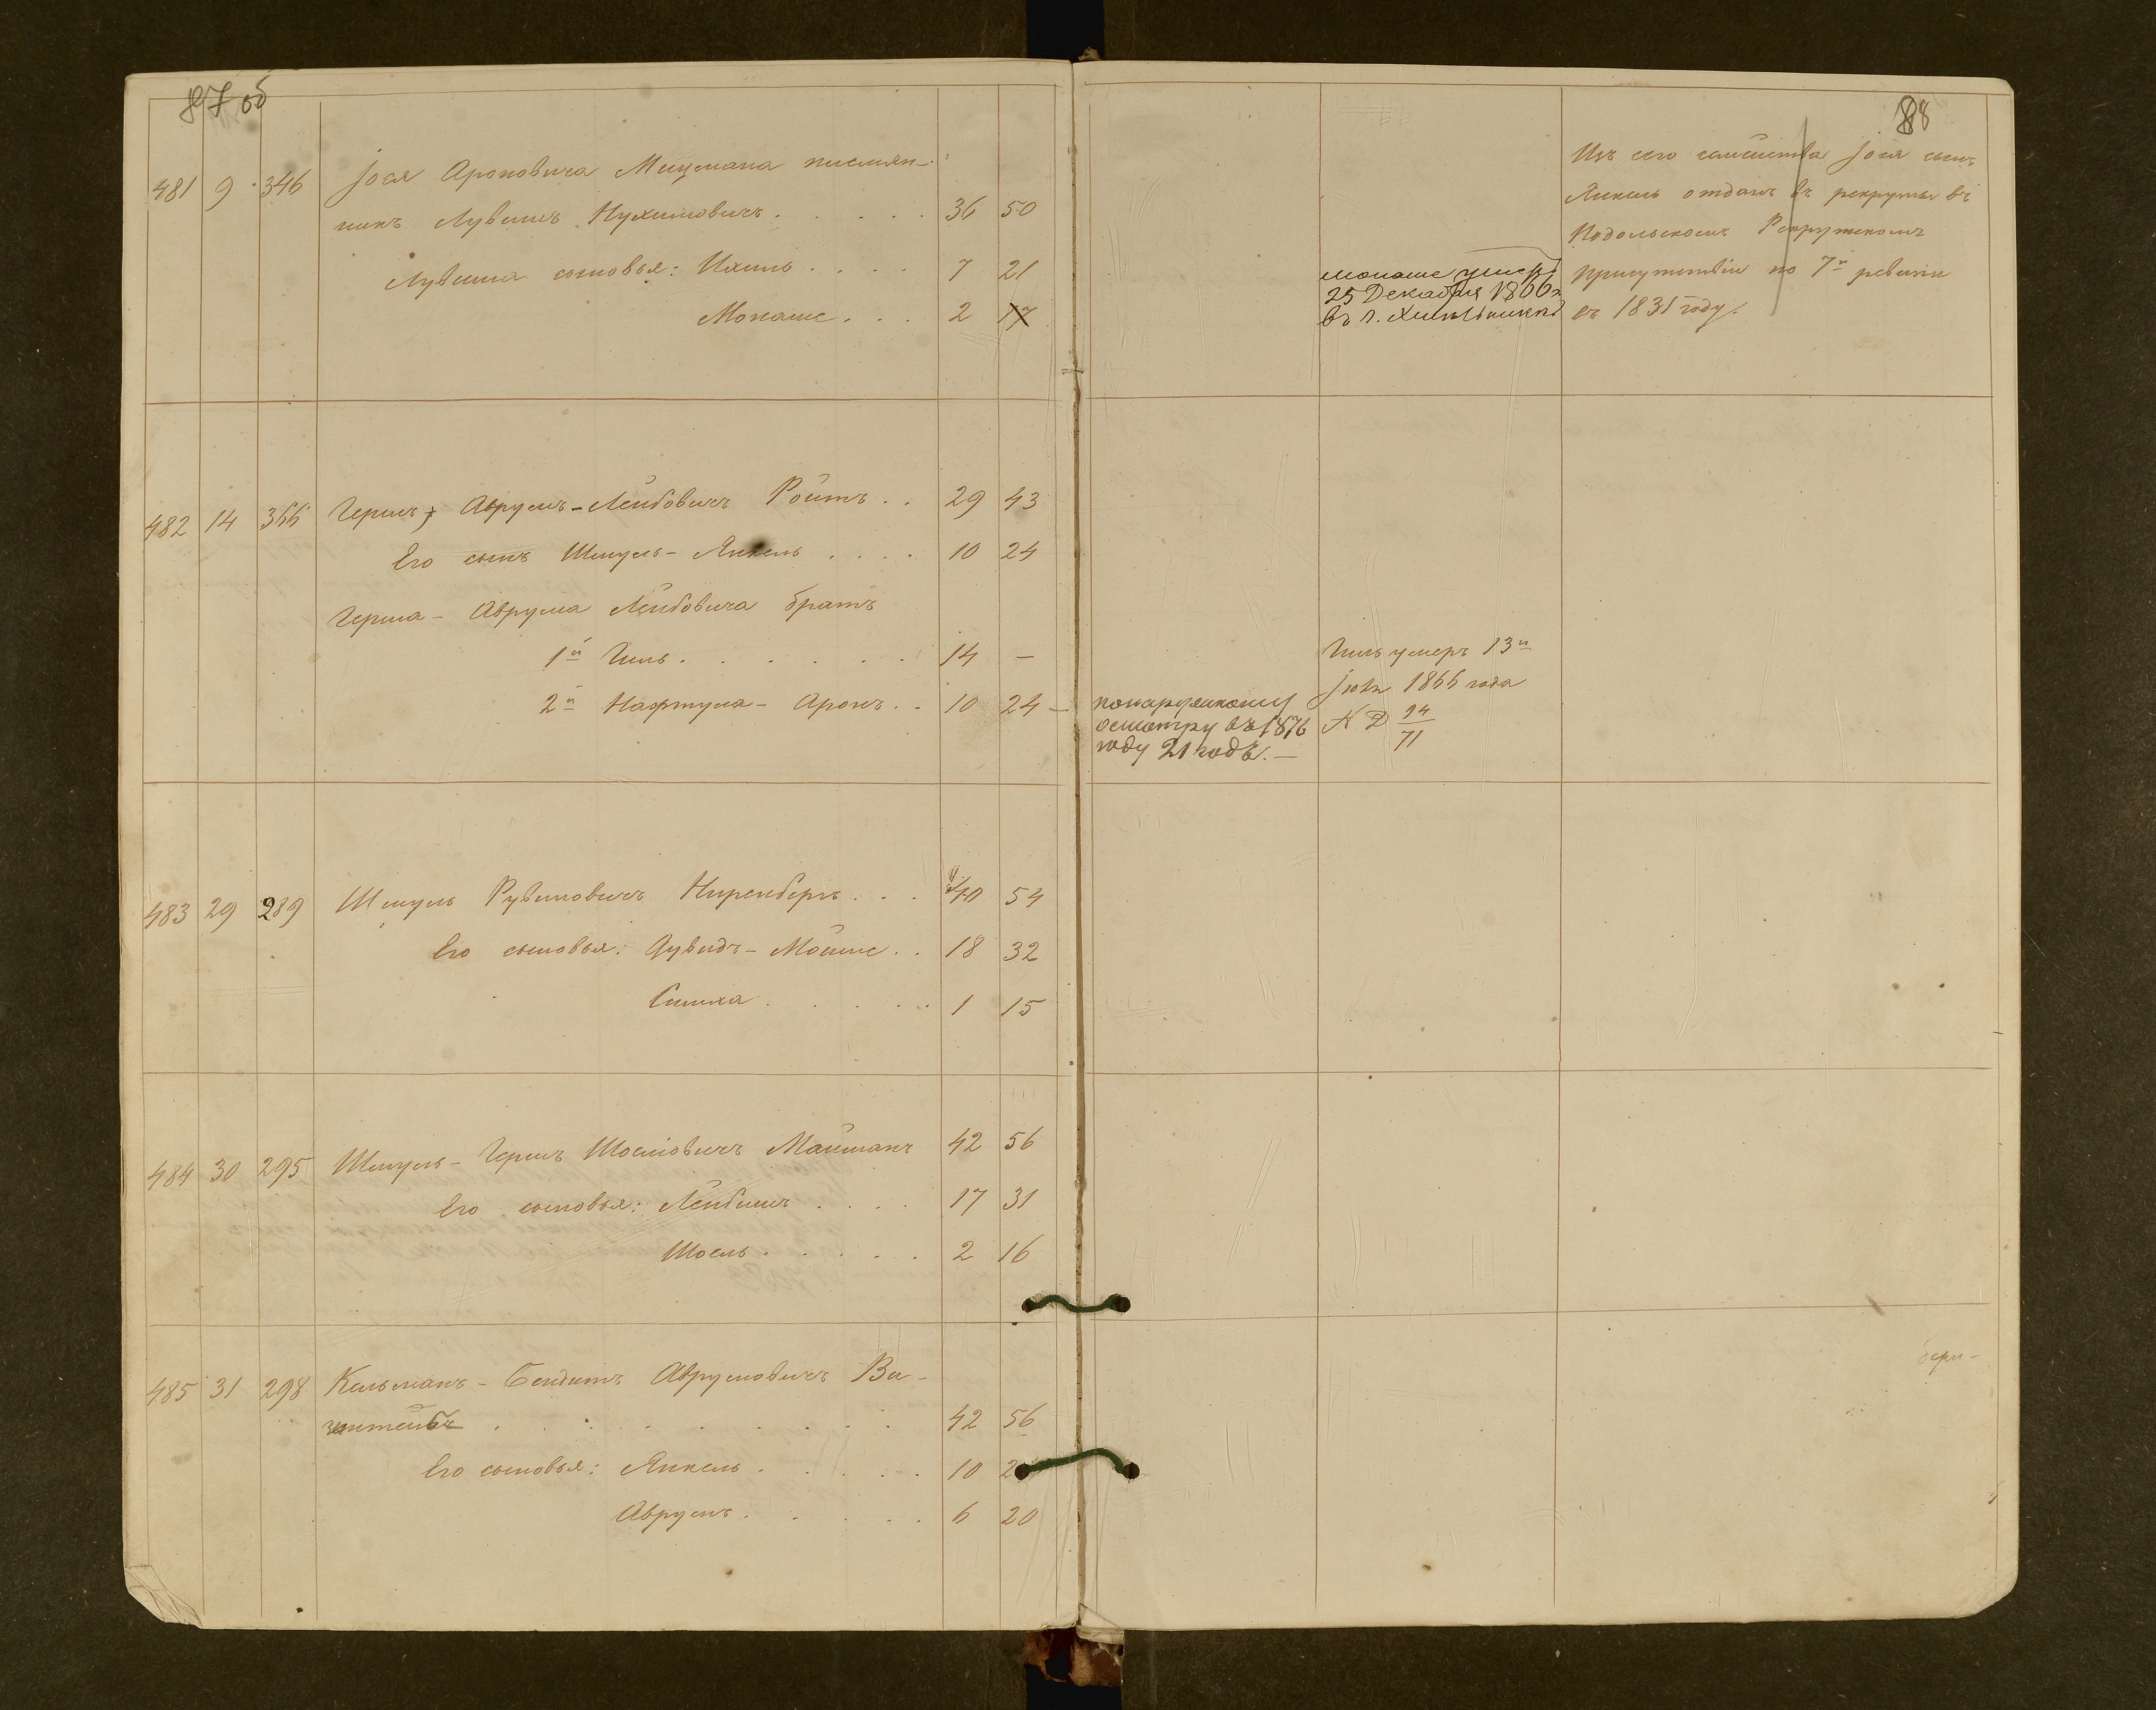 87 об
481 9 346 Іося Ароновича Мицмана племян-
никъ Лувишъ Нухимовичъ . . . . . 36 50
Лувиша сыновья: Ихиль . . . . 7 21
Монаше . . . 2 17
482 14 366 Гершъ Аврумъ-Лейбовичъ Ройтъ . . 29 43
Его сынъ Шмуль-Янкель . . . . 10 24
Герша-Аврума Лейбовича братъ
1й Гиль . . . . . . 14 —
2й Нафтула-Аронъ . . 10 24 —
483 29 289 Шмуль Рувиновичъ Ниренбергъ . . . 40 54
Его сыновья: Дувидъ-Мошие . . 18 32
Симха . . . . . 1 15
484 30 295 Шмуль-Гершъ Шоелiовичъ Майманъ 42 56
Его сыновья: Лейбишъ . . . . 17 31
Шоель . . . . . 2 16
485 31 298 Кельманъ-Бендитъ Аврумовичъ Ва-
42 56
Его сыновья: Янкель . . . . . 10
Аврумъ . . . . . 6 20
88
Изъ сего семейства Іося сынъ
Янкель отданъ въ рекруты въ
Подольскомъ Рекрутскомъ
присутствіи по 7й ревизіи
въ 1831 году.
Монаше умеръ
25 Декабря 1866 г
въ г.
Гиль умеръ 13го
Іюля 1866 года
N Д 94/71
по наружному
осмотру въ 1876
году 21 годъ. —